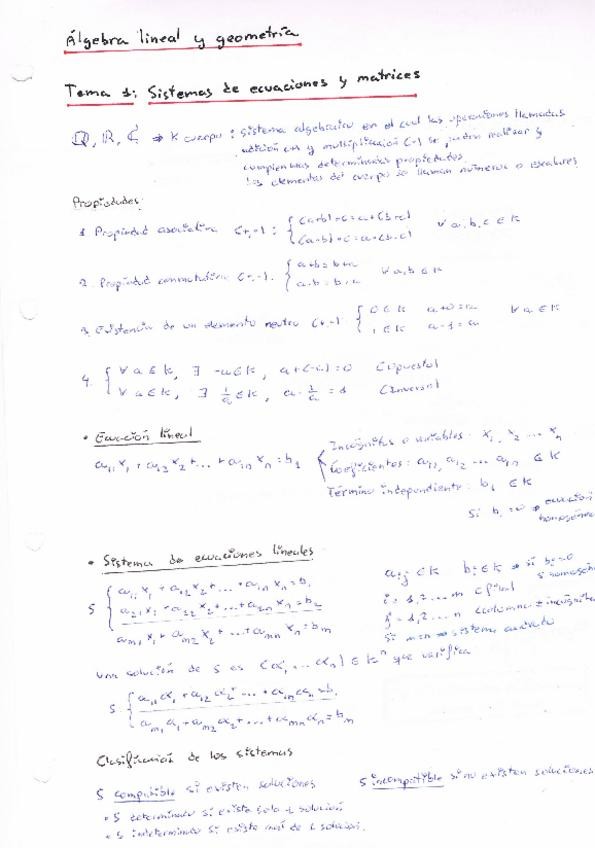 Álgebra lineal y geometría
Tema 1: Sistemas de ecuaciones y matrices
Q, R, C ⇒ K cuerpo: sistema algebraico en el cual las operaciones llamadas
adición (+) y multiplicación (·) se pueden realizar y
cumpliendo determinadas propiedades.
Los elementos del cuerpo se llaman números o escalares
Propiedades:
1. Propiedad asociativa (+,·): { (a+b)+c=a+(b+c)
(a·b)·c=a·(b·c) ∀ a,b,c ∈ K
2. Propiedad conmutativa (+,·). { a+b=b+a
a·b=b·a ∀ a,b ∈ K
3. Existencia de un elemento neutro (+,·) { 0 ∈ K a+0=a ∀ a ∈ K
1 ∈ K a·1=a
4. { ∀ a ∈ K, ∃ -a ∈ K, a+(-a)=0 (opuesto)
∀ a ∈ K, ∃ 1/a ∈ K, a· 1/a = 1 (inverso)
• Ecuación lineal
a₁₁x₁+a₁₂x₂+...+a₁ₙxₙ=b₁
Incógnitas o variables: x₁, x₂ ... xₙ
Coeficientes: a₁₁, a₁₂ ... a₁ₙ ∈ K
Término independiente: b₁ ∈ K
Si b₁=0 ⇒ ecuación
homogénea
• Sistema de ecuaciones lineales
S { a₁₁x₁+a₁₂x₂+...+a₁ₙxₙ=b₁
a₂₁x₁+a₂₂x₂+...+a₂ₙxₙ=b₂
aₘ₁x₁+aₘ₂x₂+...+aₘₙxₙ=bₘ
aᵢⱼ ∈ K bᵢ ∈ K ⇒ si bᵢ=0
S homogén
i = 1,2...m (fila)
j = 1,2...n (columna = incógnita
Si m=n ⇒ sistema cuadrado
Una solución de S es (α₁, ... αₙ) ∈ Kⁿ que verifica
S { a₁₁α₁+a₁₂α₂+...+a₁ₙαₙ=b₁
aₘ₁α₁+aₘ₂α₂+...+aₘₙαₙ=bₘ
Clasificación de los sistemas
S compatible si existen soluciones S incompatible si no existen soluciones
• S determinado si existe solo 1 solución
• S indeterminado si existe más de 1 solución.